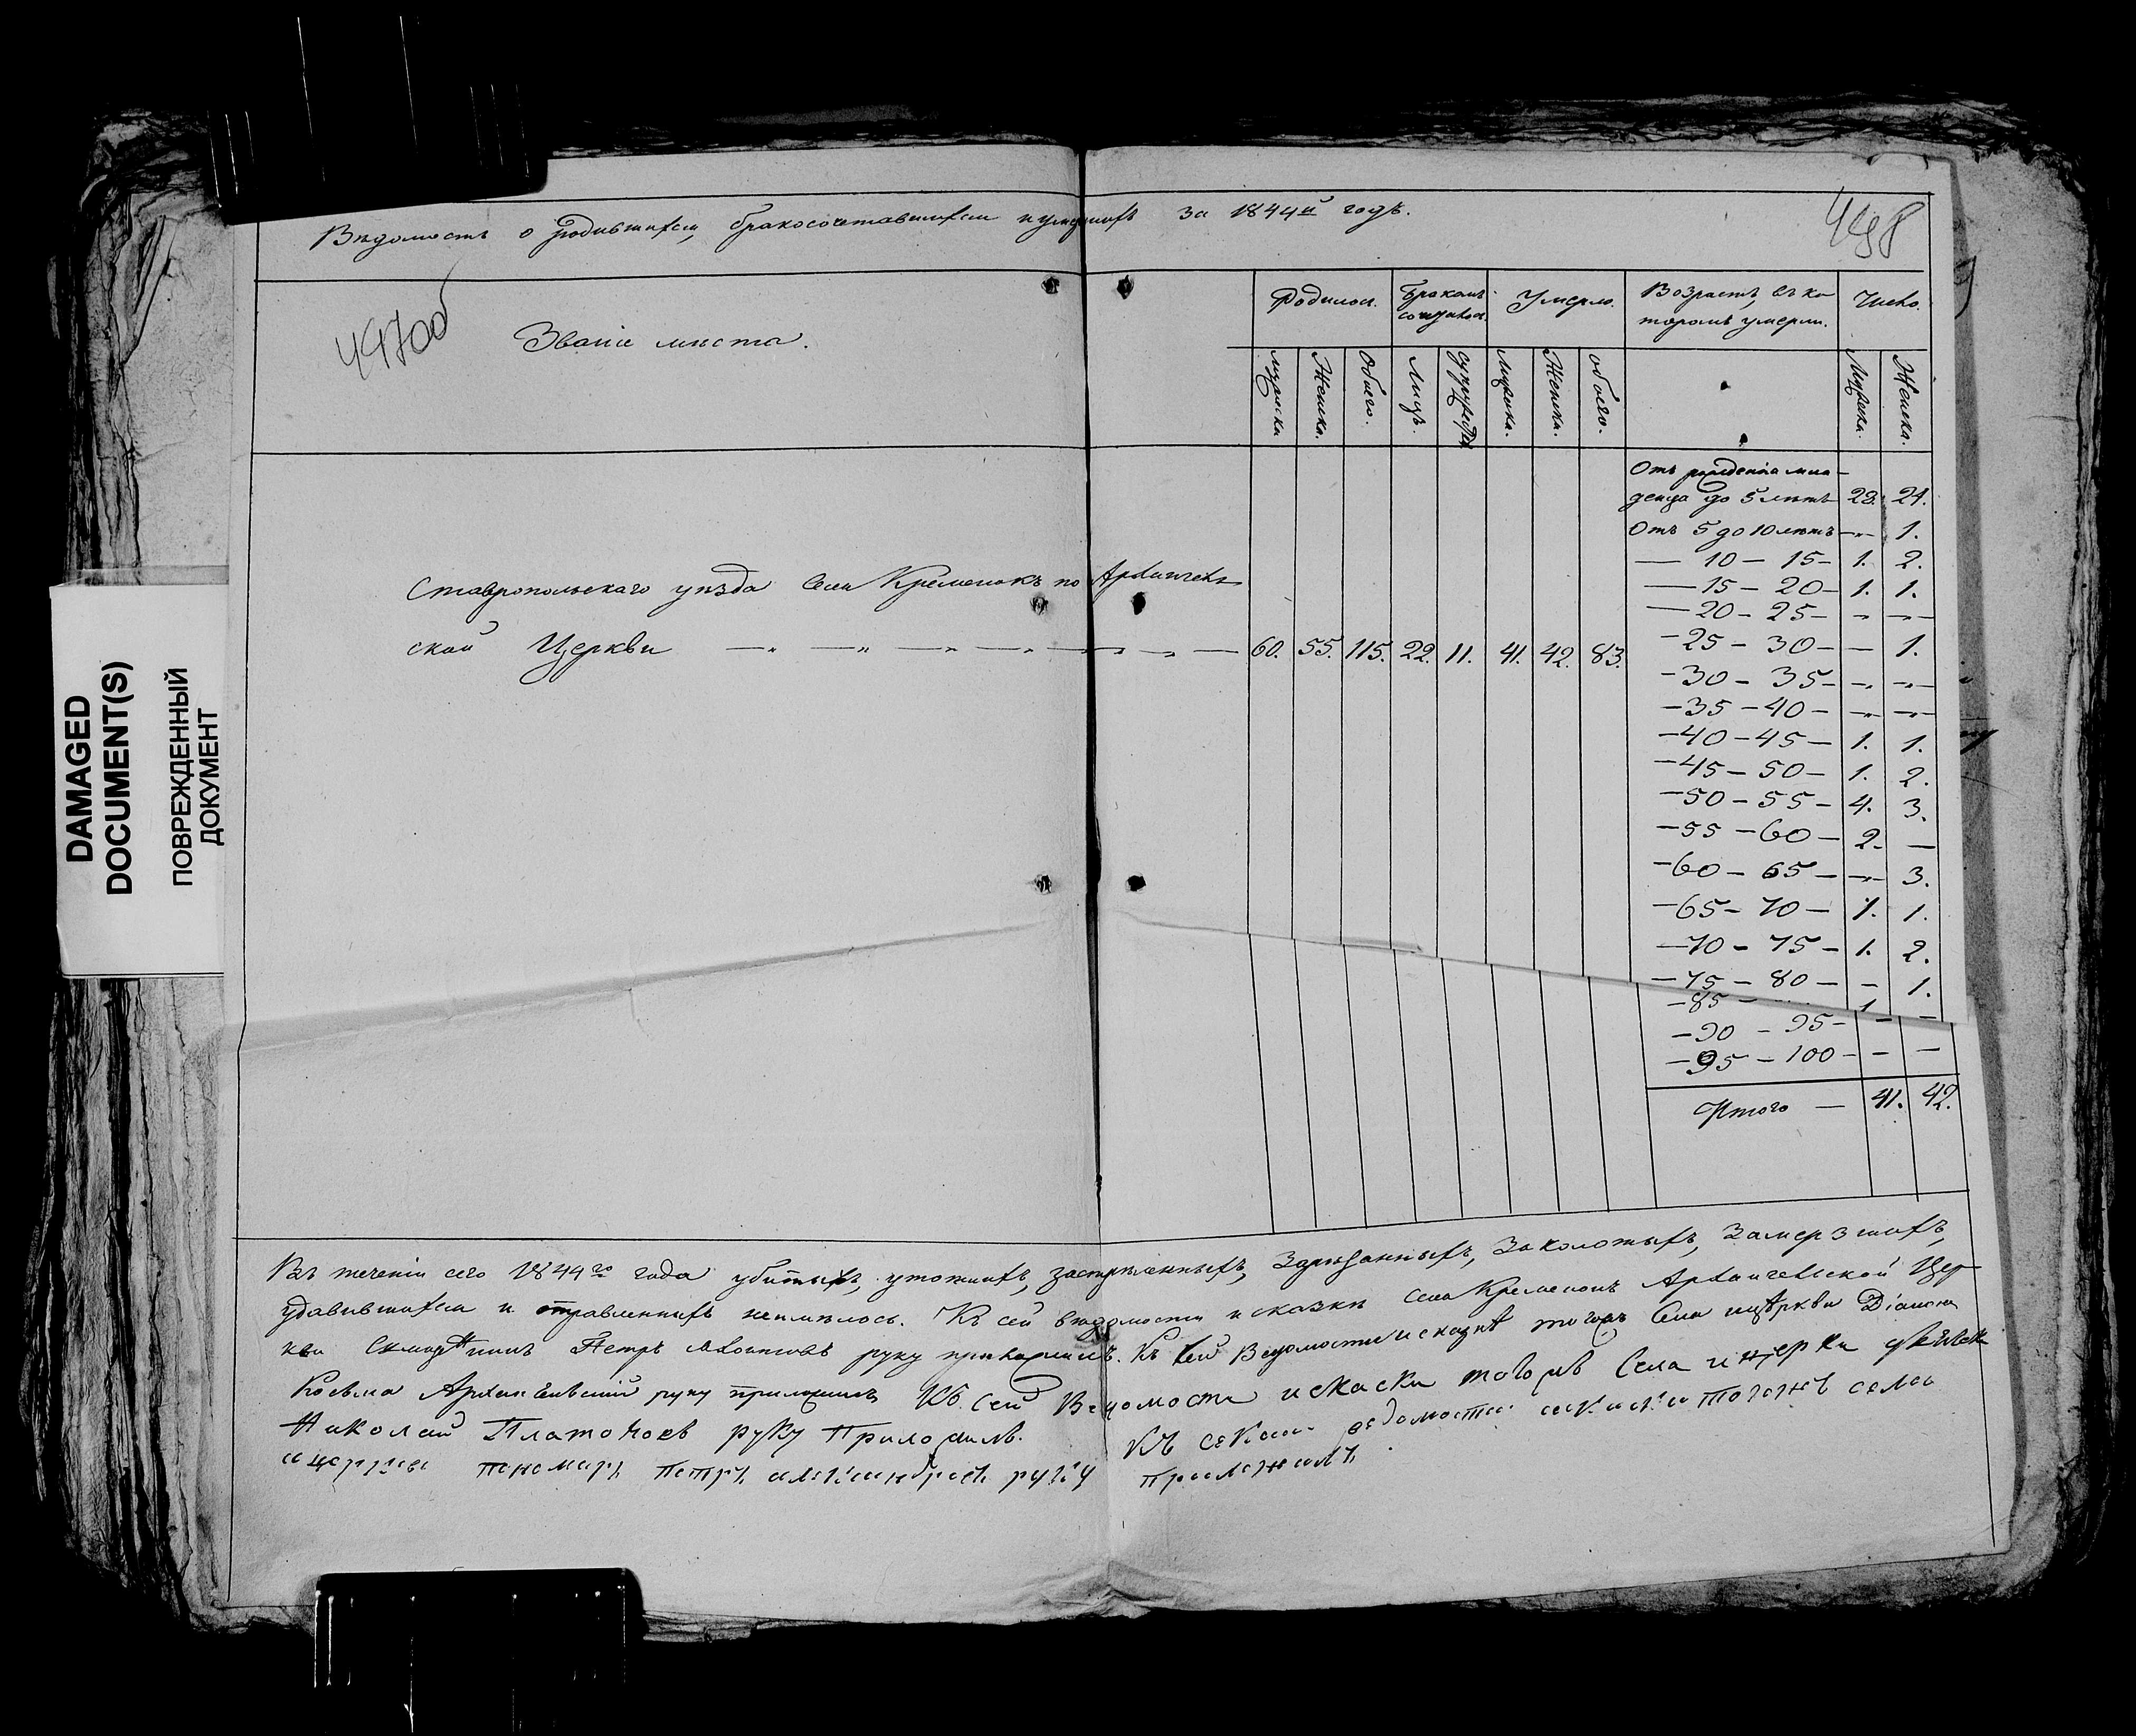 Вѣдомость о родившихся, бракосочетавшихся и умершихъ за 1844й годъ.
498
497об
Званіе мѣста.
Родилось. Бракомъ Умерло. Возрастъ, въ ко Число.
сочеталось. торомъ умерли.
Мужеска Женска. Обоего. Лицъ. Супружествъ Мужеска. Женска. обоего. Мужеска. Женска.
Отъ рожденія мла-
денца до 5 лѣтъ 28. 24.
Отъ 5 до 10 лѣтъ — 1.
— 10 — 15 — 1. 2.
— 15 — 20 — 1. 1.
— 20 — 25 — — —
— 25 — 30 — — 1.
— 30 — 35 — — —
— 35 — 40 — — —
— 40 — 45 — 1. 1.
— 45 — 50 — 1. 2.
— 50 — 55 — 4. 3.
— 55 — 60 — 2. —
— 60 — 65 — — 3.
— 65 — 70 — 1. 1.
— 70 — 75 — 1. 2.
— 75 — 80 — — 1.
— 85 — 1
— 90 — 95 — — —
— 95 — 100 — — —
Итого — 41. 42.
Ставропольскаго уѣзда Села Кременокъ по Архангель
ской Церкви — „ — „ — „ — „ — „ — 60. 55. 115. 22. 11. 41. 42. 83.
Въ теченіи сего 1844го года убитыхъ, утопшихъ, застрѣленныхъ, Зарѣзанныхъ, Заколотыхъ, Замерзшихъ,
удавившихся и отравленныхъ неимѣлось. Къ сей вѣдомости и сказки села Кременокъ Архангельской Цер
кви Священникъ Петръ руку приложилъ. Къ сей Ведомости и сказкѣ тогожъ Села ицеркви Діаконъ
Козьма Архангельскій руку приложилъ Къ сей Ведомости искаски тогожъ Села ицеркви
Николай Платоновъ руку Приложилъ. Къ сей ведомости искаски тогожъ села
ицеркви пономарь Петръ александровъ руку приложилъ
DAMAGED
DOCUMENT(S)
ПОВРЕЖДЕННЫЙ
ДОКУМЕНТ